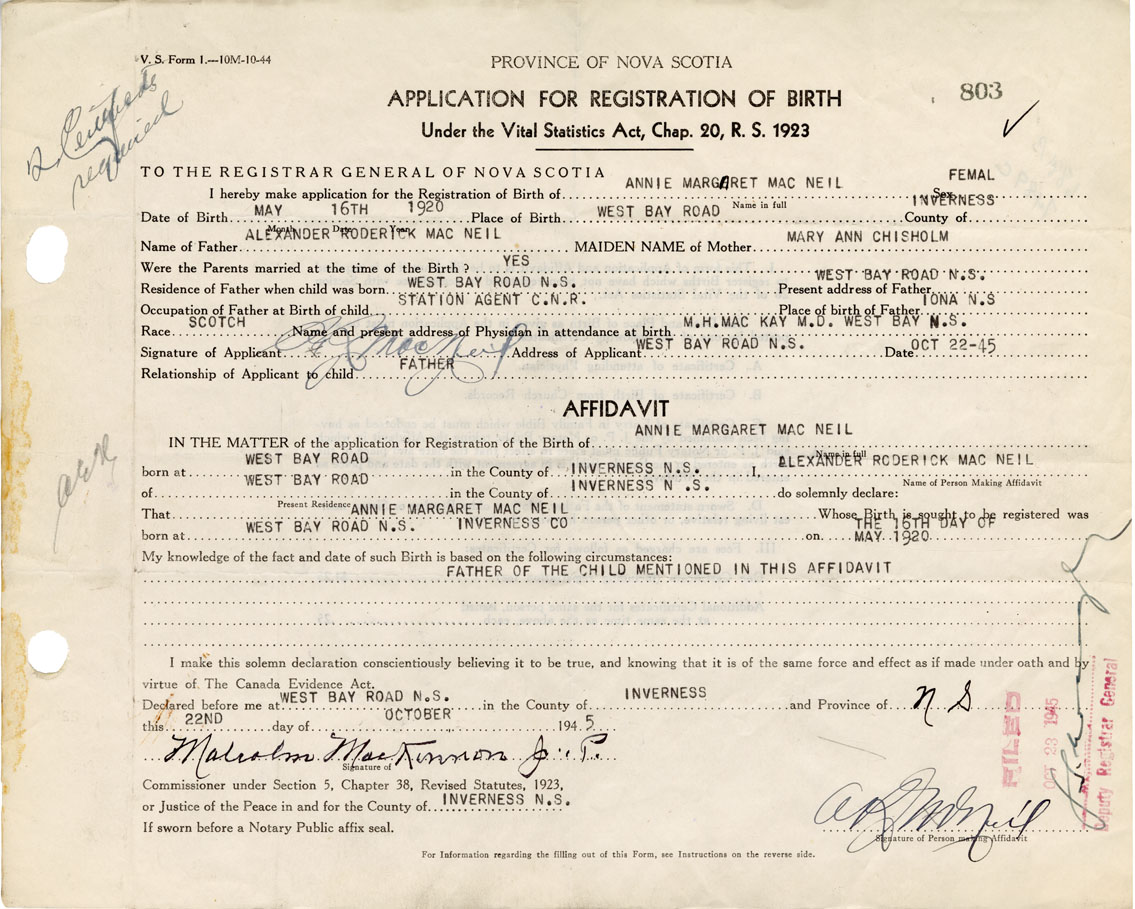 V. S. Form 1.—10M-10-44
PROVINCE OF NOVA SCOTIA
803
2 Certificates required
APPLICATION FOR REGISTRATION OF BIRTH
Under the Vital Statistics Act, Chap. 20, R. S. 1923
TO THE REGISTRAR GENERAL OF NOVA SCOTIA
I hereby make application for the Registration of Birth of ANNIE MARGARET MAC NEIL Sex FEMAL
Name in full
Date of Birth MAY 16TH 1920 Place of Birth WEST BAY ROAD County of INVERNESS
Month Date Year
Name of Father ALEXANDER RODERICK MAC NEIL MAIDEN NAME of Mother MARY ANN CHISHOLM
Were the Parents married at the time of the Birth ? YES
Residence of Father when child was born WEST BAY ROAD N.S. Present address of Father WEST BAY ROAD N.S.
Occupation of Father at Birth of child STATION AGENT C.N.R. Place of birth of Father IONA N.S
Race SCOTCH Name and present address of Physician in attendance at birth M.H.MAC KAY M.D. WEST BAY N.S.
Signature of Applicant A R MacNeil Address of Applicant WEST BAY ROAD N.S. Date OCT 22-45
Relationship of Applicant to child FATHER
AFFIDAVIT
IN THE MATTER of the application for Registration of the Birth of ANNIE MARGARET MAC NEIL
Name in full
born at WEST BAY ROAD in the County of INVERNESS N.S. I ALEXANDER RODERICK MAC NEIL
Name of Person Making Affidavit
of WEST BAY ROAD in the County of INVERNESS N .S. do solemnly declare:
Present Residence
That ANNIE MARGARET MAC NEIL Whose Birth is sought to be registered was
born at WEST BAY ROAD N.S. INVERNESS CO on THE 16TH DAY OF MAY 1920
My knowledge of the fact and date of such Birth is based on the following circumstances:
FATHER OF THE CHILD MENTIONED IN THIS AFFIDAVIT
I make this solemn declaration conscientiously believing it to be true, and knowing that it is of the same force and effect as if made under oath and by
virtue of The Canada Evidence Act.
Declared before me at WEST BAY ROAD N.S. in the County of INVERNESS and Province of N S
this 22ND day of OCTOBER 1945
Malcolm MacKinnon J. P.
Signature of
Commissioner under Section 5, Chapter 38, Revised Statutes, 1923,
or Justice of the Peace in and for the County of INVERNESS N.S.
If sworn before a Notary Public affix seal.
A R McNeil
Signature of Person making Affidavit
FILED
OCT 23 1945
Deputy Registrar General
For Information regarding the filling out of this Form, see Instructions on the reverse side.